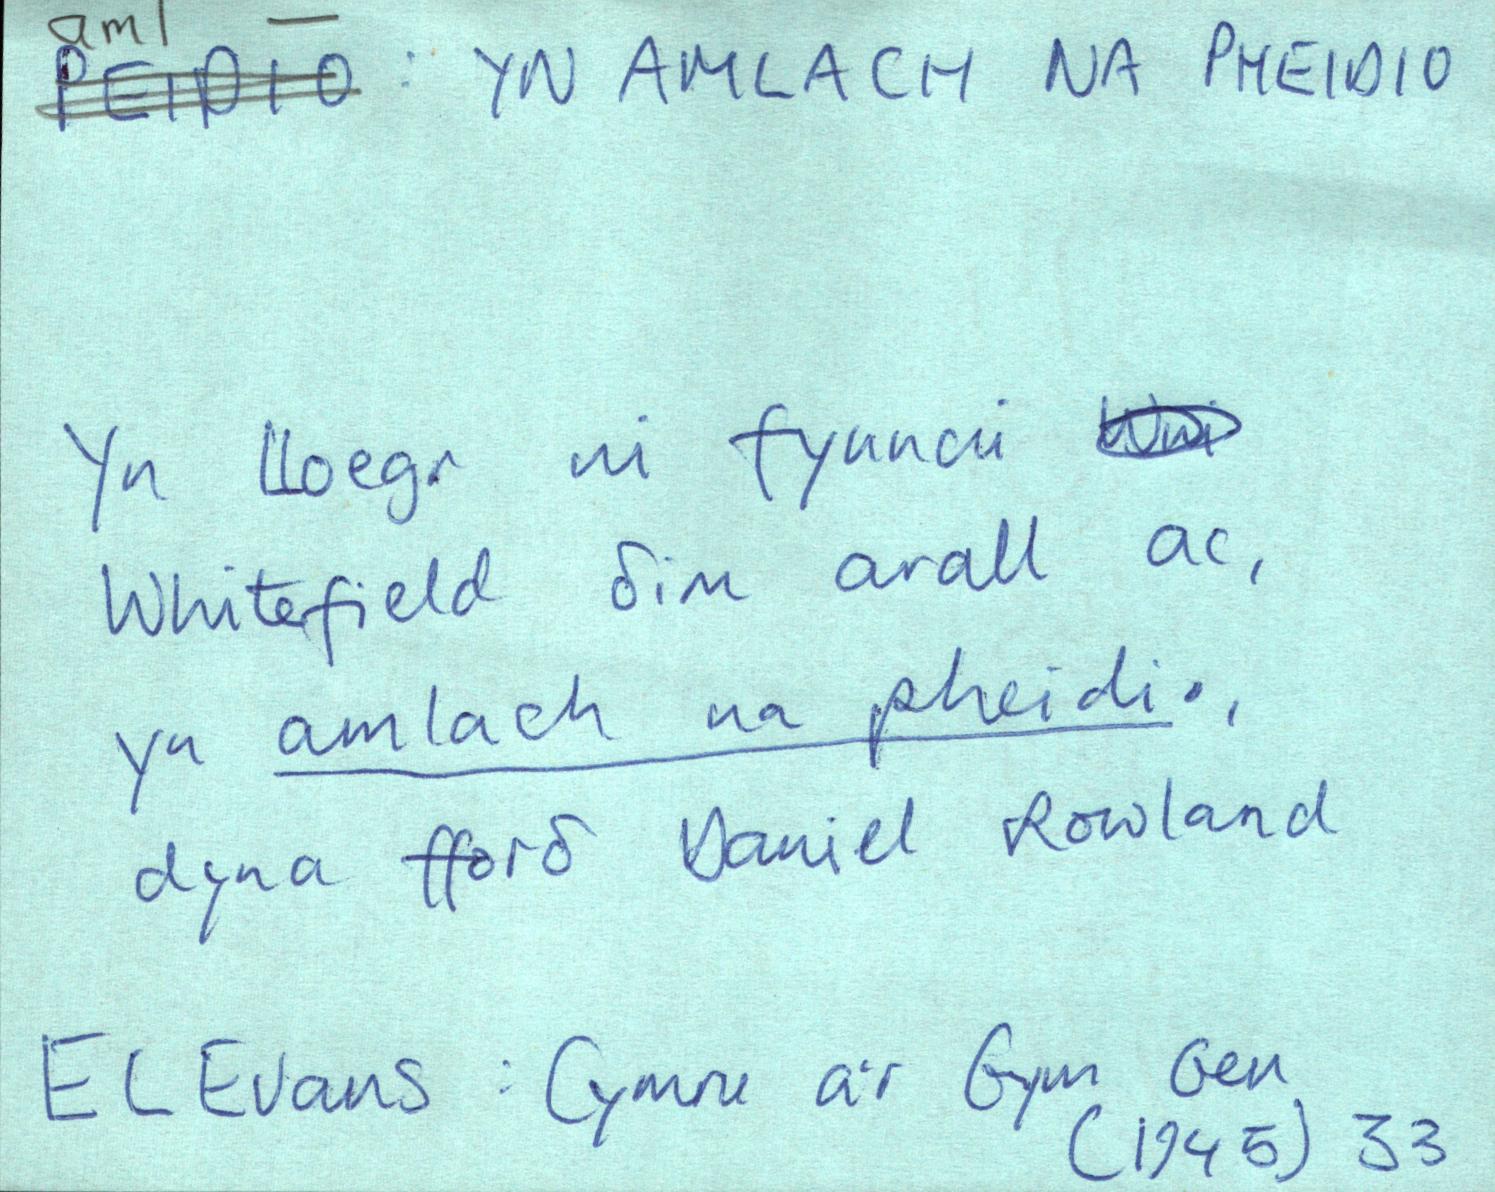 aml —
PEIDIO : YN AMLACH NA PHEIDIO
Yn Lloegr ni fynnai
Whitefield δim arall ac,
yn amlach na pheidio,
dyna fforδ Daniel Rowland
E L Evans : Cymru a'r Gym Gen
(1945) 33